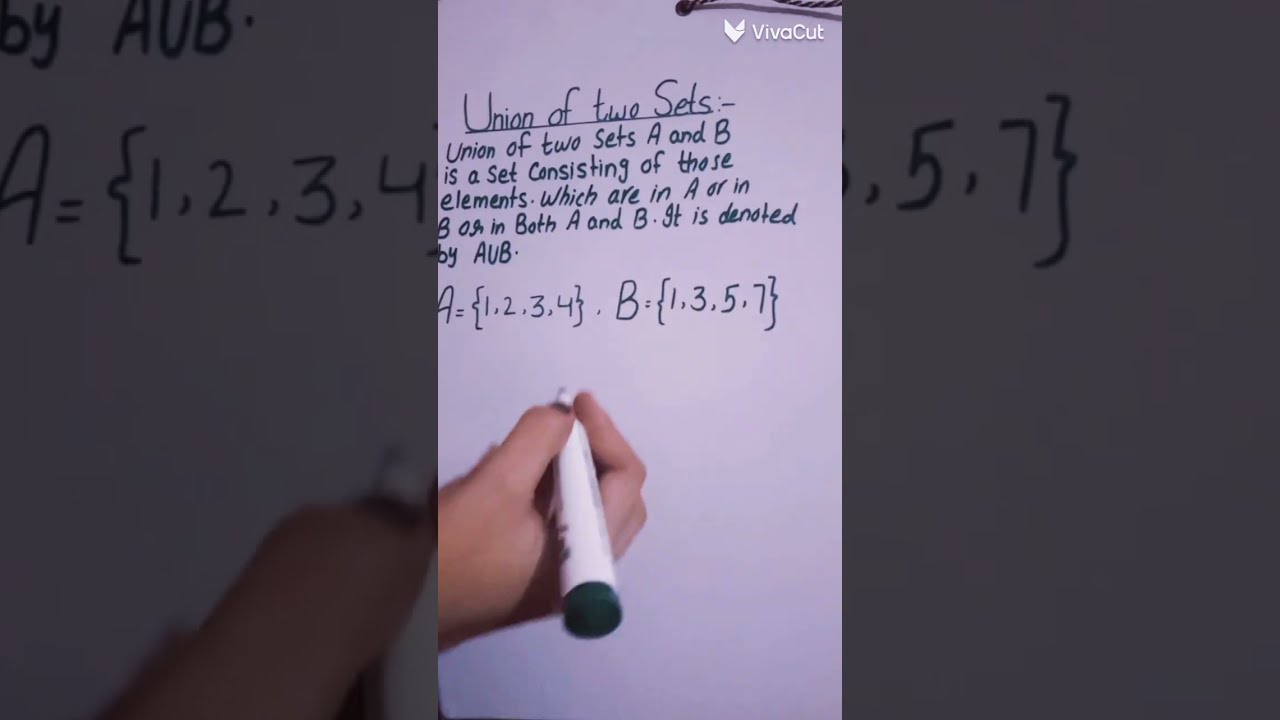 VivaCut
Union of two Sets:-
Union of two Sets A and B
is a Set Consisting of those
elements. Which are in A or in
B or in Both A and B. It is denoted
by AUB.
A = {1, 2, 3, 4} , B = {1, 3, 5, 7}
by AUB.
A = {1, 2, 3, 4
, 5, 7}